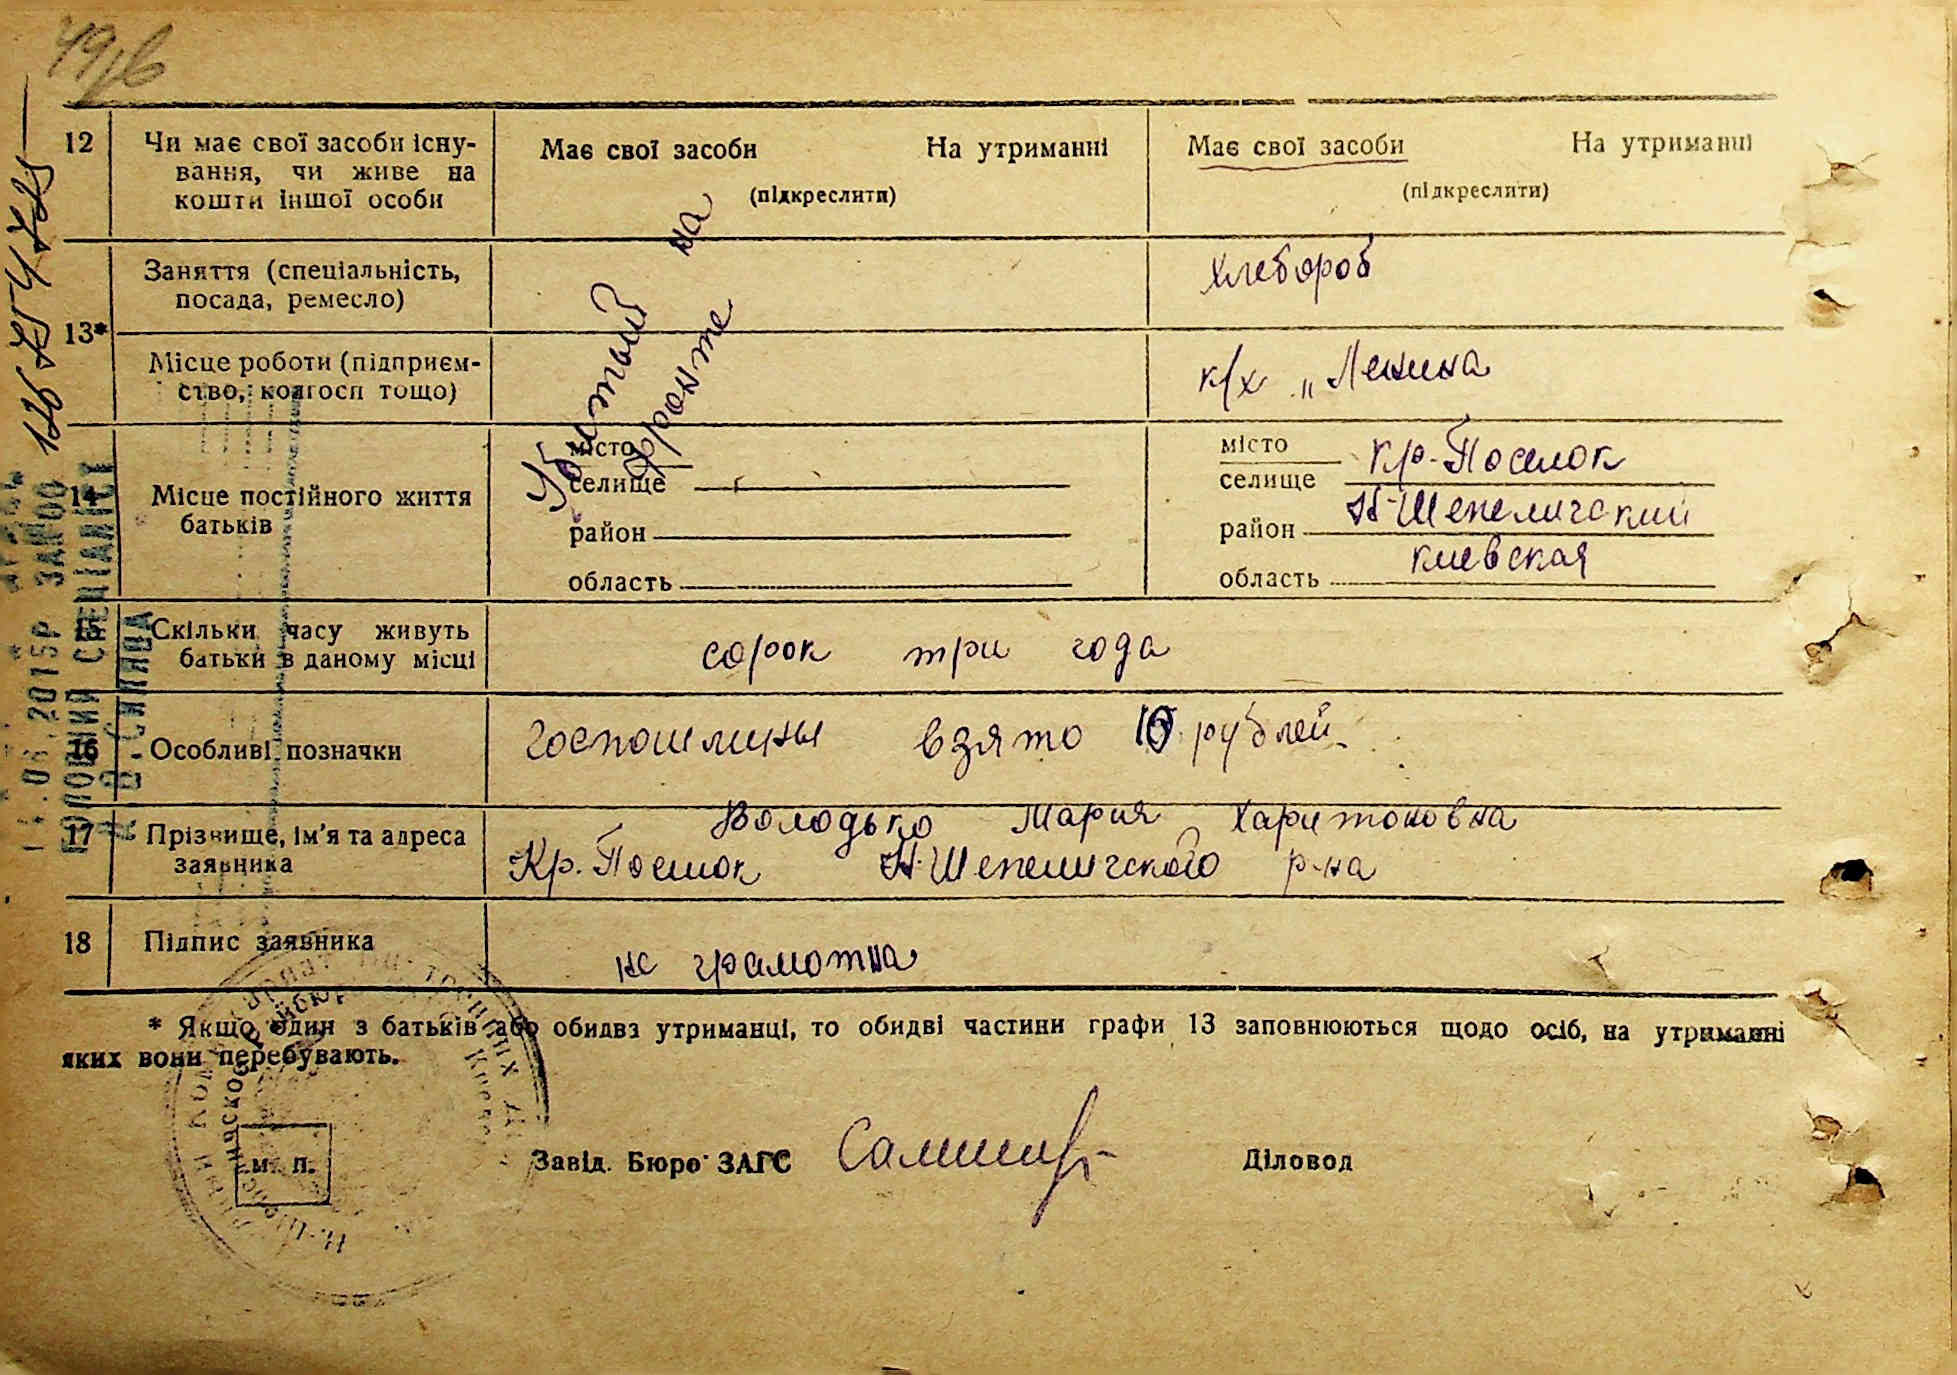 12
Чи має свої засоби існу-
вання, чи живе на
кошти іншої особи
Має свої засоби На утриманні
(підкреслити)
Має свої засоби На утриманні
(підкреслити)
13*
Заняття (спеціальність,
посада, ремесло)
хлебороб
Місце роботи (підприєм-
ство, колгосп тощо)
к/х „Ленина
Убитый на
фронте
14
Місце постійного життя
батьків
місто
селище
район
область
місто
селище кр-Поселок
район Н-Шепеличский
область киевская
15
Скільки часу живуть
батьки в даному місці
сорок три года
16
Особливі позначки
госпошлины взято 10 рублей.
17
Прізвище, ім'я та адреса
заявника
Володько Мария Харитоновна
Кр. Поселок Н-Шепеличского р-на
18
Підпис заявника
не грамотна
* Якщо один з батьків або обидва утриманці, то обидві частини графи 13 заповнюються щодо осіб, на утриманні
яких вони перебувають.
м. п.
Завід. Бюро ЗАГС
Діловод